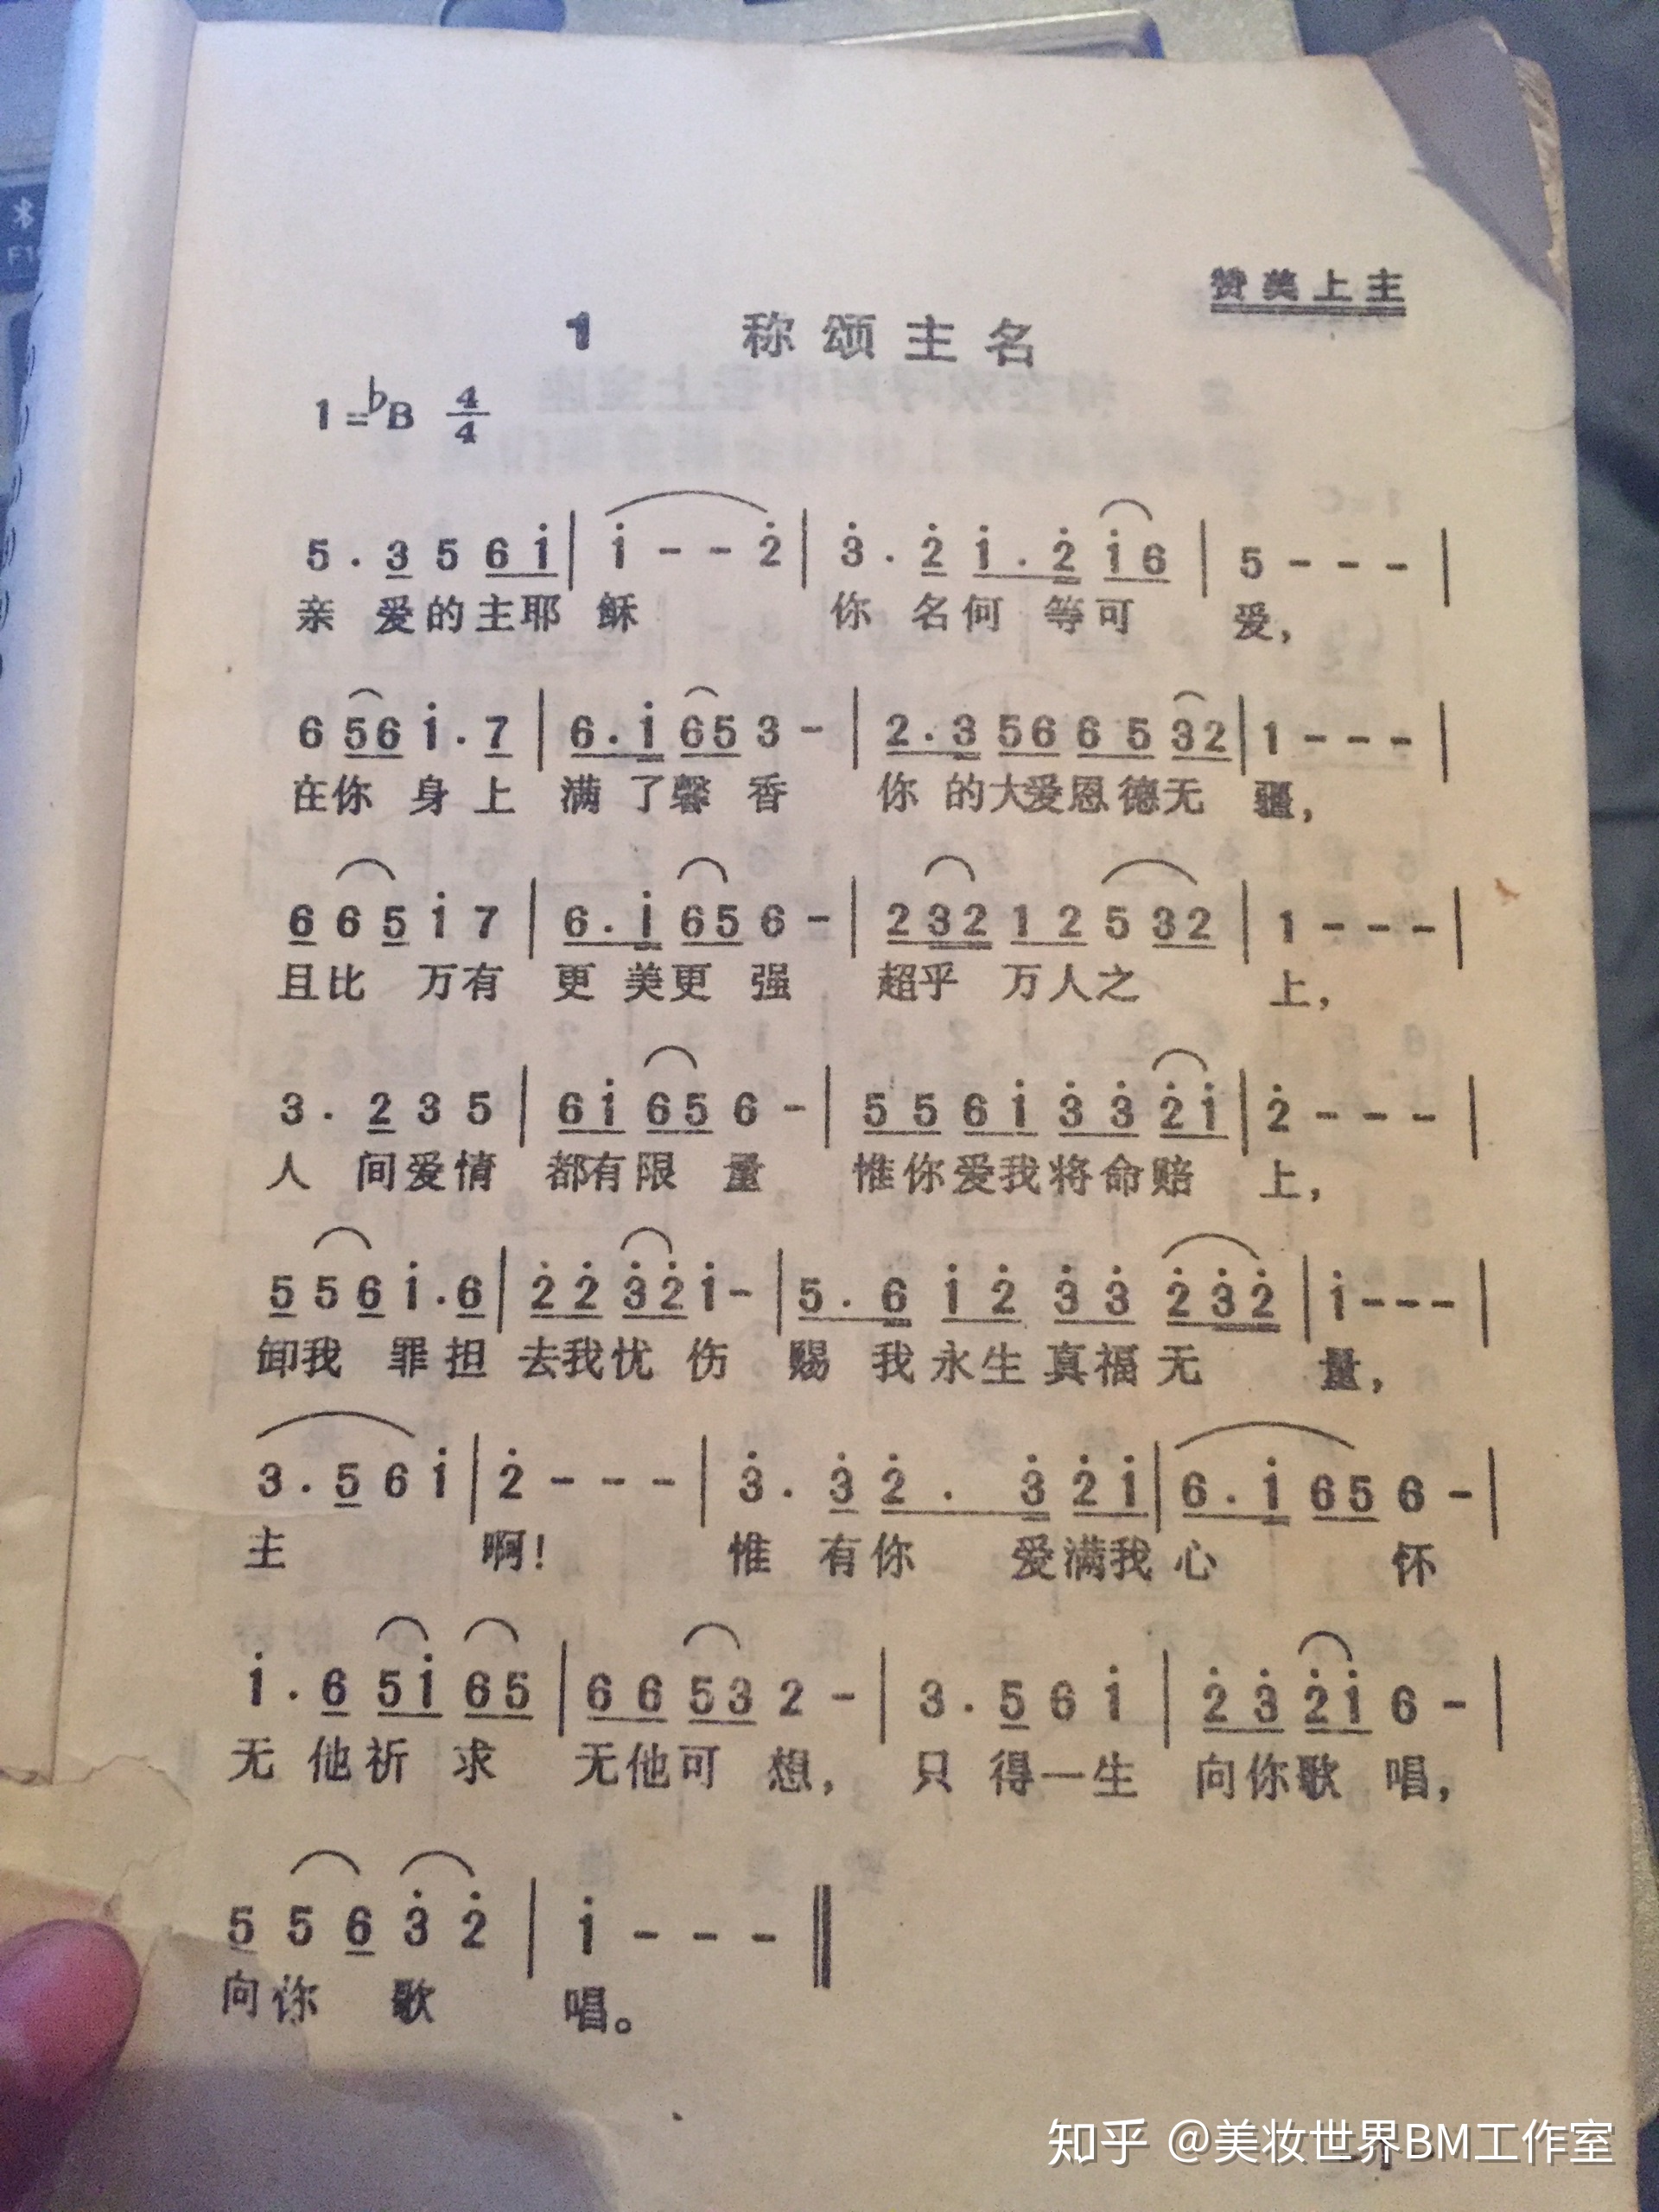 赞美上主
1 称颂主名
1=♭B 4/4
5 . 3 5 6 i | i - - 2̇ | 3̇ . 2̇ i . 2̇ i 6 | 5 - - - |
亲 爱的主耶 稣 你 名何 等可 爱，
6 56 i . 7 | 6 . i 65 3 - | 2 . 3 56 6 5 32 | 1 - - - |
在你 身 上 满 了馨 香 你 的大爱恩德无 疆，
6 6 5 i 7 | 6 . i 65 6 - | 2 32 1 2 5 32 | 1 - - - |
且比 万有 更 美更 强 超乎 万人之 上，
3 . 2 3 5 | 6i 65 6 - | 5 5 6 i 3̇ 3̇ 2̇ i | 2̇ - - - |
人 间爱情 都有限 量 惟你爱我将命赔 上，
5 5 6 i . 6 | 2̇ 2̇ 3̇ 2̇ i - | 5 . 6 i 2̇ 3̇ 3̇ 2̇ 3̇ 2̇ | i - - - |
卸我 罪担 去我忧 伤 赐 我永生真福无 量，
3 . 5 6 i | 2̇ - - - | 3̇ . 3̇ 2̇ . 3̇ 2̇ i | 6 . i 65 6 - |
主 啊！ 惟 有你 爱满我 心 怀
i . 6 5i 65 | 6 6 53 2 - | 3 . 5 6 i | 2̇ 3̇ 2̇ i 6 - |
无 他祈 求 无他可 想， 只 得一生 向你歌 唱，
5 5 6 3̇ 2̇ | i - - - ‖
向你 歌 唱。
知乎 @美妆世界BM工作室